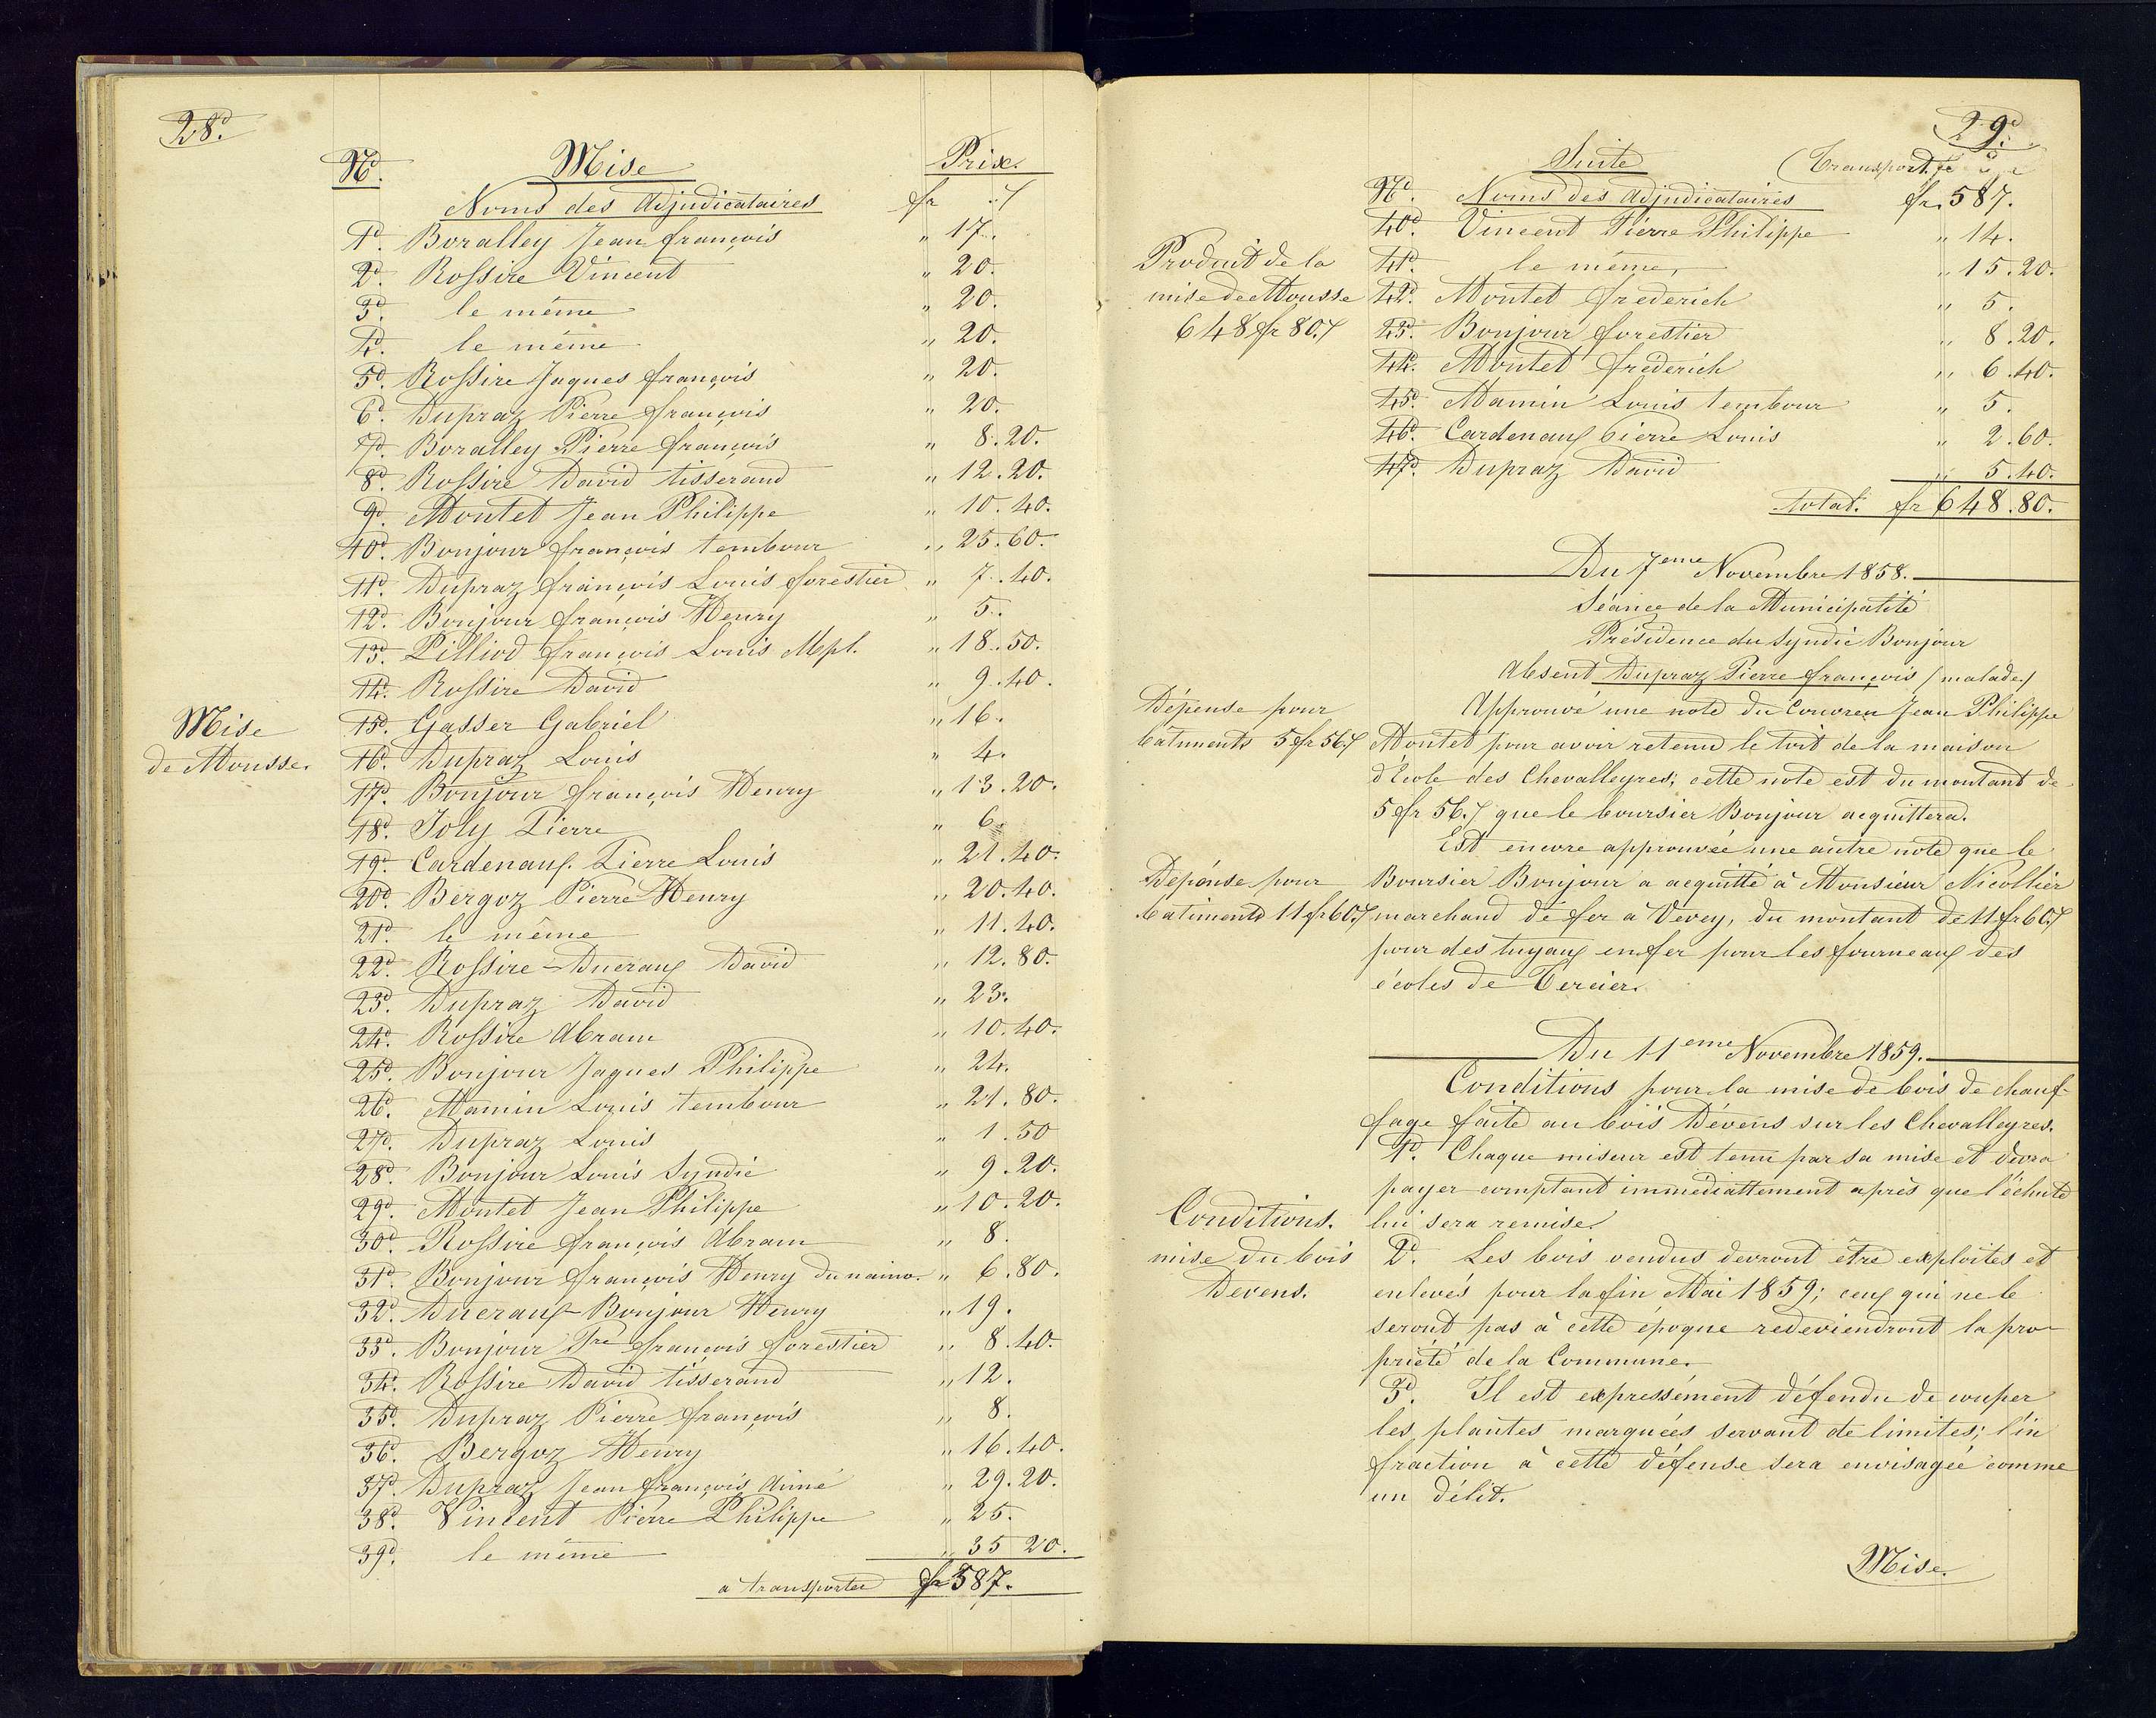 28.
No. Mise Prix.
Noms des Adjudicataires fr
1o. Boralley Jean françois " 17.
2o. Rossire Vincent " 20.
3o. le même " 20.
4o. le même " 20.
5o. Rossire Jaques françois " 20.
6o. Dupraz Pierre françois " 20.
7o. Boralley Pierre françois " 8.20.
8o. Rossire David tisserand " 12.20.
9o. Montet Jean Philippe " 10.40.
10o. Bonjour françois tembour " 25.60.
11o. Dupraz françois Louis forestier " 7.40.
12o. Bonjour françois Henry " 5.
13o. Pilliod françois Louis Mpl. " 18.50.
14o. Rossire David " 9.40.
15o. Gasser Gabriel " 16.
16o. Dupraz Louis " 4.
17o. Bonjour françois Henry " 13.20.
18o. Joly Pierre " 6.
19o. Cardenaux Pierre Louis " 21.40.
20o. Bergoz Pierre Henry " 20.40.
21o. le même " 11.40.
22o. Rossire-Ducraux David " 12.80.
23o. Dupraz David " 23.
24o. Rossire Abram " 10.40.
25o. Bonjour Jaques Philippe " 24.
26o. Mamin Louis tembour " 21.80.
27o. Dupraz Louis " 1.50
28o. Bonjour Louis Syndic " 9.20.
29o. Montet Jean Philippe " 10.20.
30o. Rossire françois Abram " 8.
31o. Bonjour françois Henry du " 6.80.
32o. Ducraux-Bonjour Henry " 19.
33o. Bonjour Pre françois forestier " 8.40.
34o. Rossire David tisserand " 12.
35o. Dupraz Pierre françois " 8.
36o. Bergoz Henry " 16.40.
37o. Dupraz Jean françois Aimé " 29.20.
38o. Vincent Pierre Philippe " 25.
39o. le même " 35 20.
a transporter fr 587.
Mise
de Mousse.
29.
Suite (Transport
No. Noms des Adjudicataires fr. 587.
40o. Vincent Pierre Philippe " 14.
41o. le même, " 15.20.
42o. Montet frederich " 5.
43o. Bonjour forestier " 8.20.
44o. Montet frederich " 6.40.
45o. Mamin Louis tembour " 5.
46o. Cardenaux Pierre Louis " 2.60.
47o. Dupraz David " 5.40.
Total. fr 648.80.
Produit de la
mise de Mousse
648 fr 80.
Du 7eme Novembre 1858.
Séance de la Municipalité
Présidence du Syndic Bonjour
Absent Dupraz Pierre françois / malade /
Dépense pour
batiments 5 fr 56.
Approuvé une note du Couvreu Jean Philippe
Montet pour avoir retenu le toit de la maison
d'école des Chevalleyres; cette note est du montant de
5 fr 56. que le boursier Bonjour acquittera.
Est encore approuvée une autre note que le
Dépense pour
batiments 11 fr 60.
Boursier Bonjour a acquitté à Monsieur Nicollier
marchand de fer à Vevey, du montant de 11 fr 60.
pour des tuyaux en fer pour les fourneaux des
écoles de Tercier.
Du 11eme Novembre 1859.
Conditions pour la mise de bois de chauf-
fage faite au bois Dévens sur les Chevalleyres.
1o. Chaque miseur est tenu par sa mise et devra
payer comptant immédiattement après que l'échute
lui sera remise.
Conditions.
mise du bois
Devens.
2o. Les bois vendus devront être exploités et
enlevés pour la fin Mai 1859; ceux qui ne le
seront pas à cette époque redeviendront la pro-
priété de la Commune.
3o. Il est expressément défendu de couper
les plantes marquées servant de limites; l'in
fraction à cette défense sera envisagée comme
un délit.
Mise.